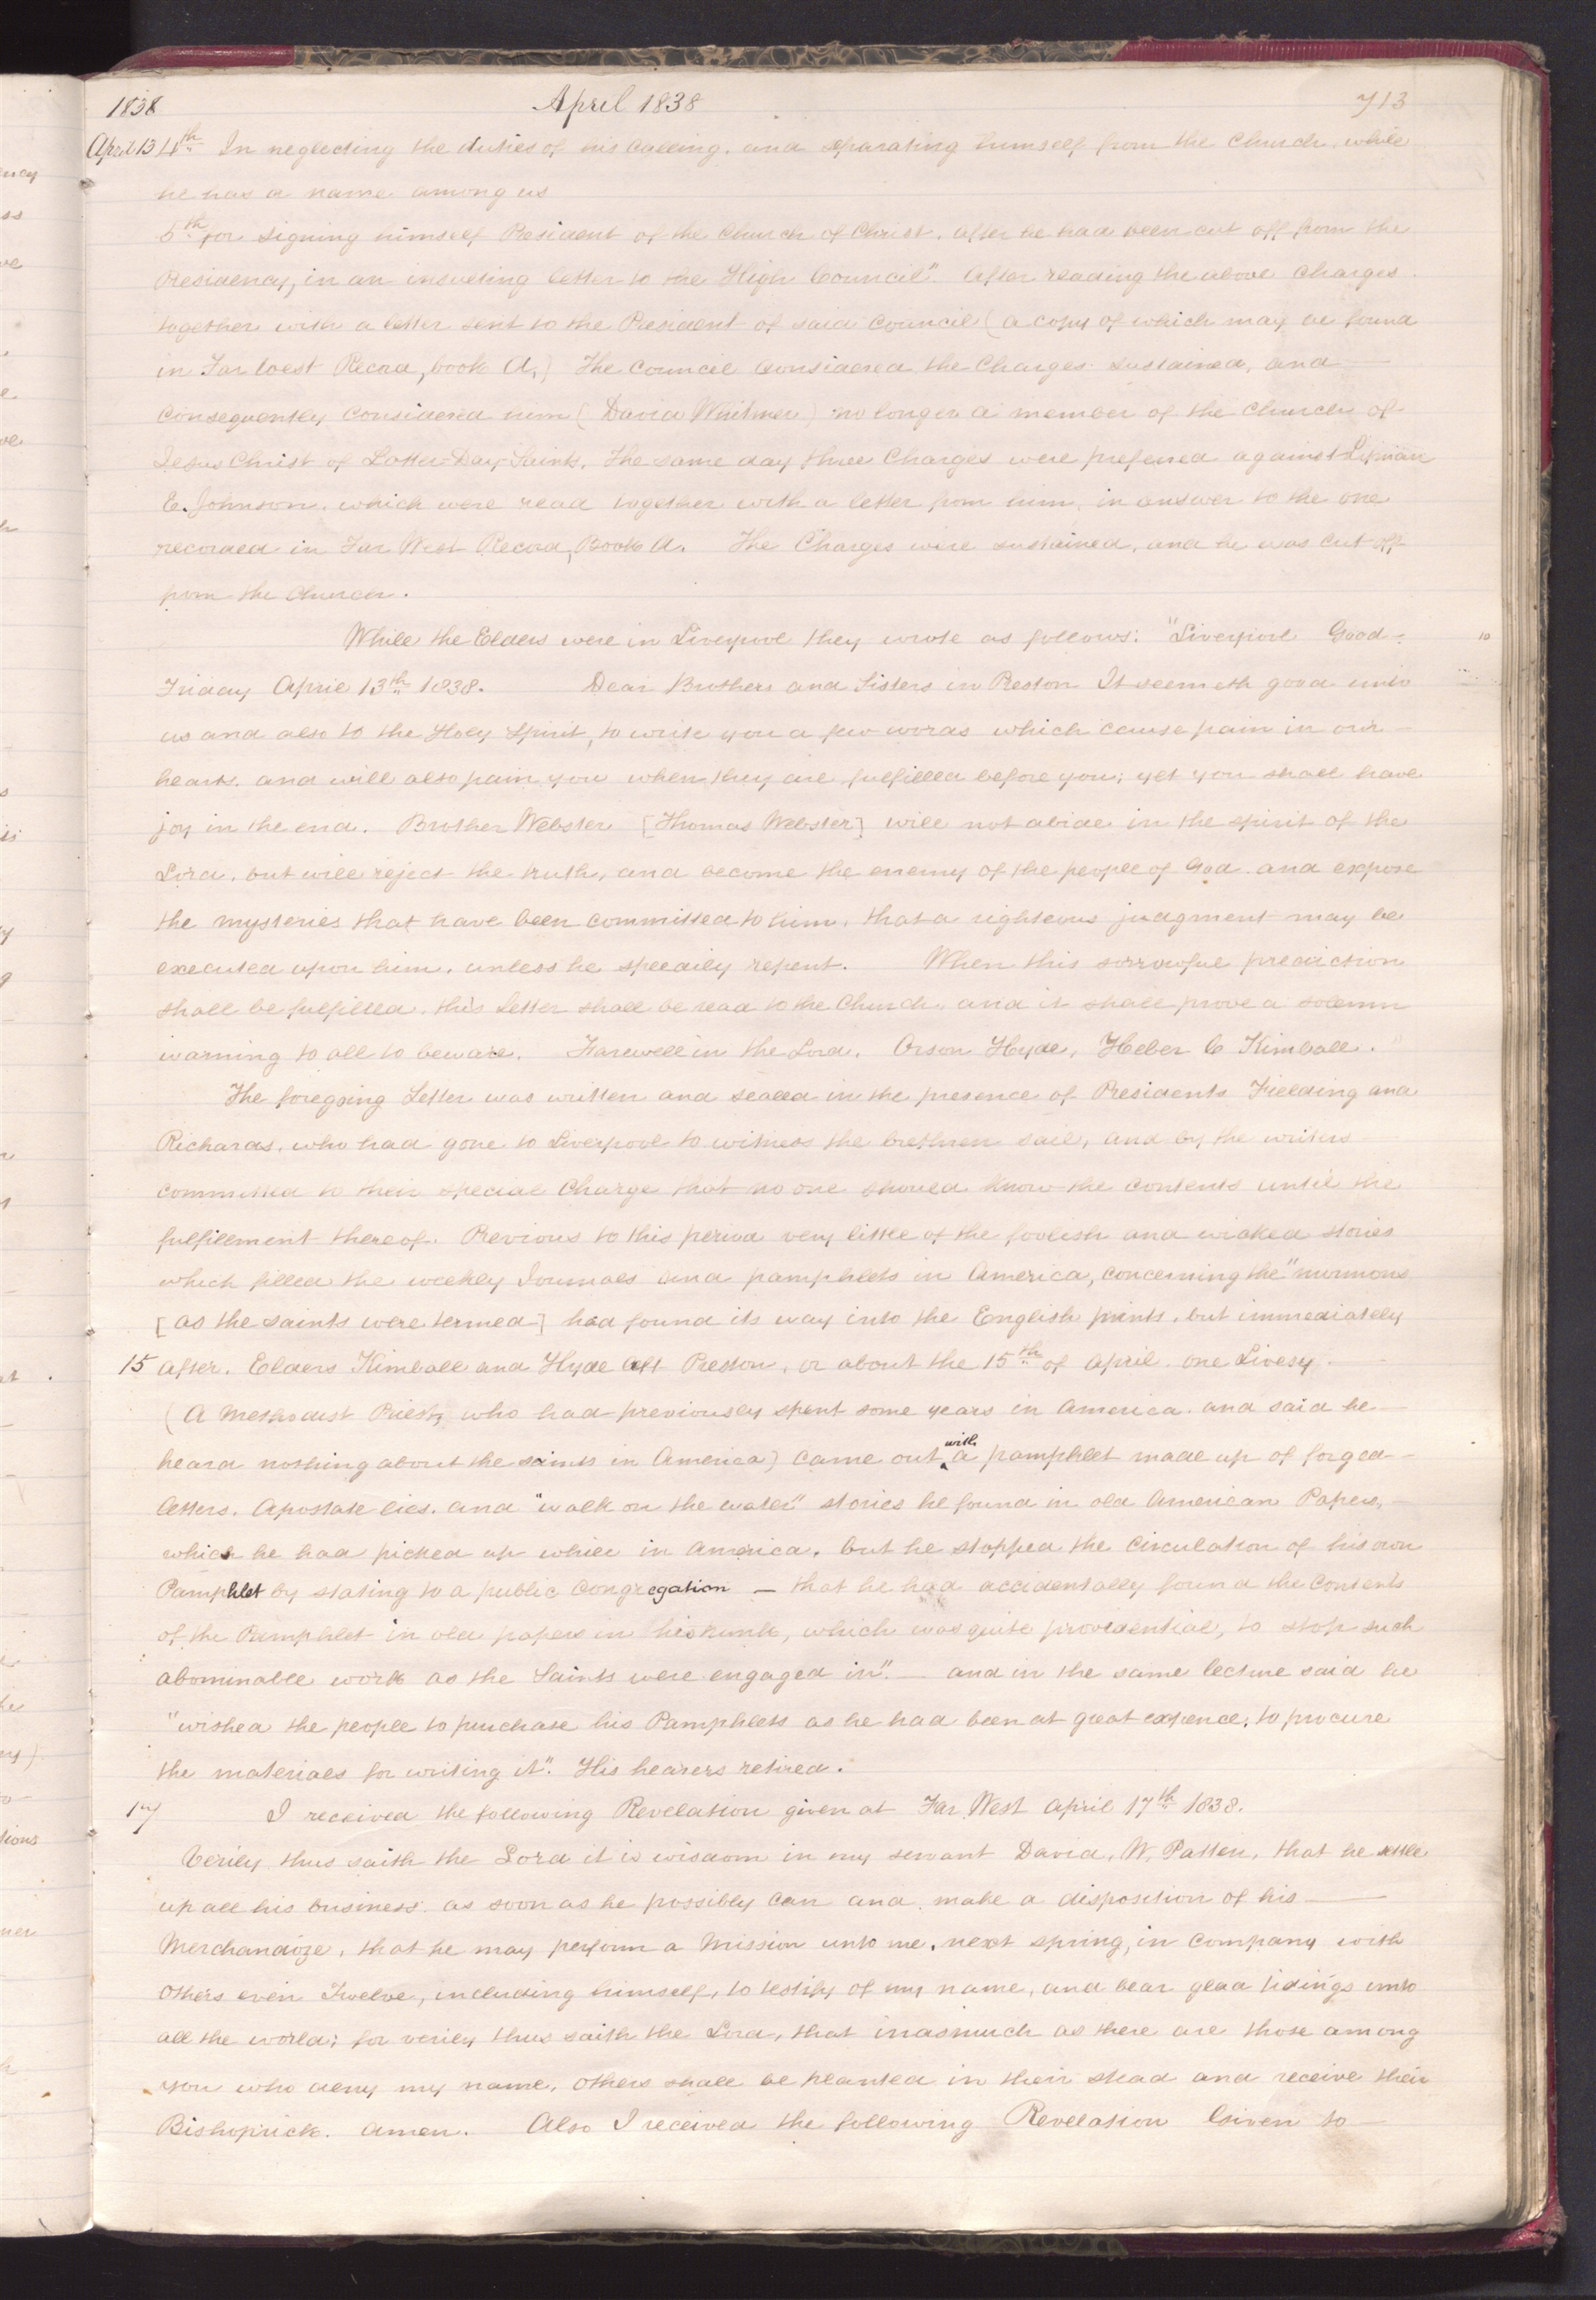 1838 April 1838 713
April 13 4th In neglecting the duties of his calling. and separating himself from the Church, while
he has a name among us
5th for signing himself President of the Church of Christ. after he had been cut off from the
Presidency, in an insulting letter to the High Council". After reading the above charges
together with a letter sent to the President of said council (a copy of which may be found
in Far West Record, book A.) The council considered the Charges sustained, and
consequently considered him (David Whitmer) no longer a member of the church of
Jesus Christ of Latter-Day-Saints. The same day three Charges were preferred against Lyman
E. Johnson. which were read together with a letter from him, in answer to the one
recorded in Far West Record, Book A. The Charges were sustained, and he was cut off
from the church.
While the Elders were in Liverpool they wrote as follows: "Liverpool Good-
10
Friday April 13th 1838. Dear Brothers and Sisters in Preston It seemeth good unto
us and also to the Holy Spirit, to write you a few words which cause pain in our
hearts. and will also pain you when they are fulfilled before you; yet you shall have
joy in the end. Brother Webster [Thomas Webster] will not abide in the spirit of the
Lord. but will reject the truth, and become the enemy of the people of God. and expose
the mysteries that have been committed to him. that a righteous judgment may be
executed upon him. unless he speedily repent. When this sorrowful prediction
shall be fulfilled. this Letter shall be read to the Church, and it shall prove a solemn
warning to all to beware. Farewell in the Lord. Orson Hyde, Heber C Kimball."
The foregoing Letter was written and sealed in the presence of Presidents Fielding and
Richards, who had gone to Liverpool to witness the brethren sail, and by the writers
committed to their special Charge that no one should know the contents until the
fulfillment thereof. Previous to this period very little of the foolish and wicked stories
which filled the weekly Journals and pamphlets in America, concerning the "mormons
[as the saints were termed] had found its way into the English prints. but immediately
15 after. Elders Kimball and Hyde left Preston. or about the 15th of April. one Livesy
(A Methodist Priest, who had previously spent some years in America. and said he
heard nothing about the saints in America) came out with a pamphlet made up of forged
letters. Apostate lies. and "walk on the water" stories he found in old American Papers,
which he had picked up while in America. but he stopped the circulation of his own
Pamphlet by stating to a public congregation — that he had accidentally found the contents
of the Pamphlet in old papers in his trunk, which was quite providential, to stop such
abominable work as the Saints were engaged in". — and in the same lecture said he
"wished the people to purchase his Pamphlets as he had been at great expence. to procure
the materials for writing it". His hearers retired.
17 I received the following Revelation given at Far West April 17th 1838.
Verily thus saith the Lord it is wisdom in my servant David. W. Patten. that he settle
up all his business. as soon as he possibly can and. make a disposition of his ——
Merchandize. that he may perform a Mission unto me. next spring, in company with
others even Twelve, including himself, to testify of my name, and bear glad tidings unto
all the world; for verily thus saith the Lord, that inasmuch as there are those among
you who deny my name. others shall be planted in their stead and receive their
Bishoprick. Amen. Also I received the following Revelation Given to